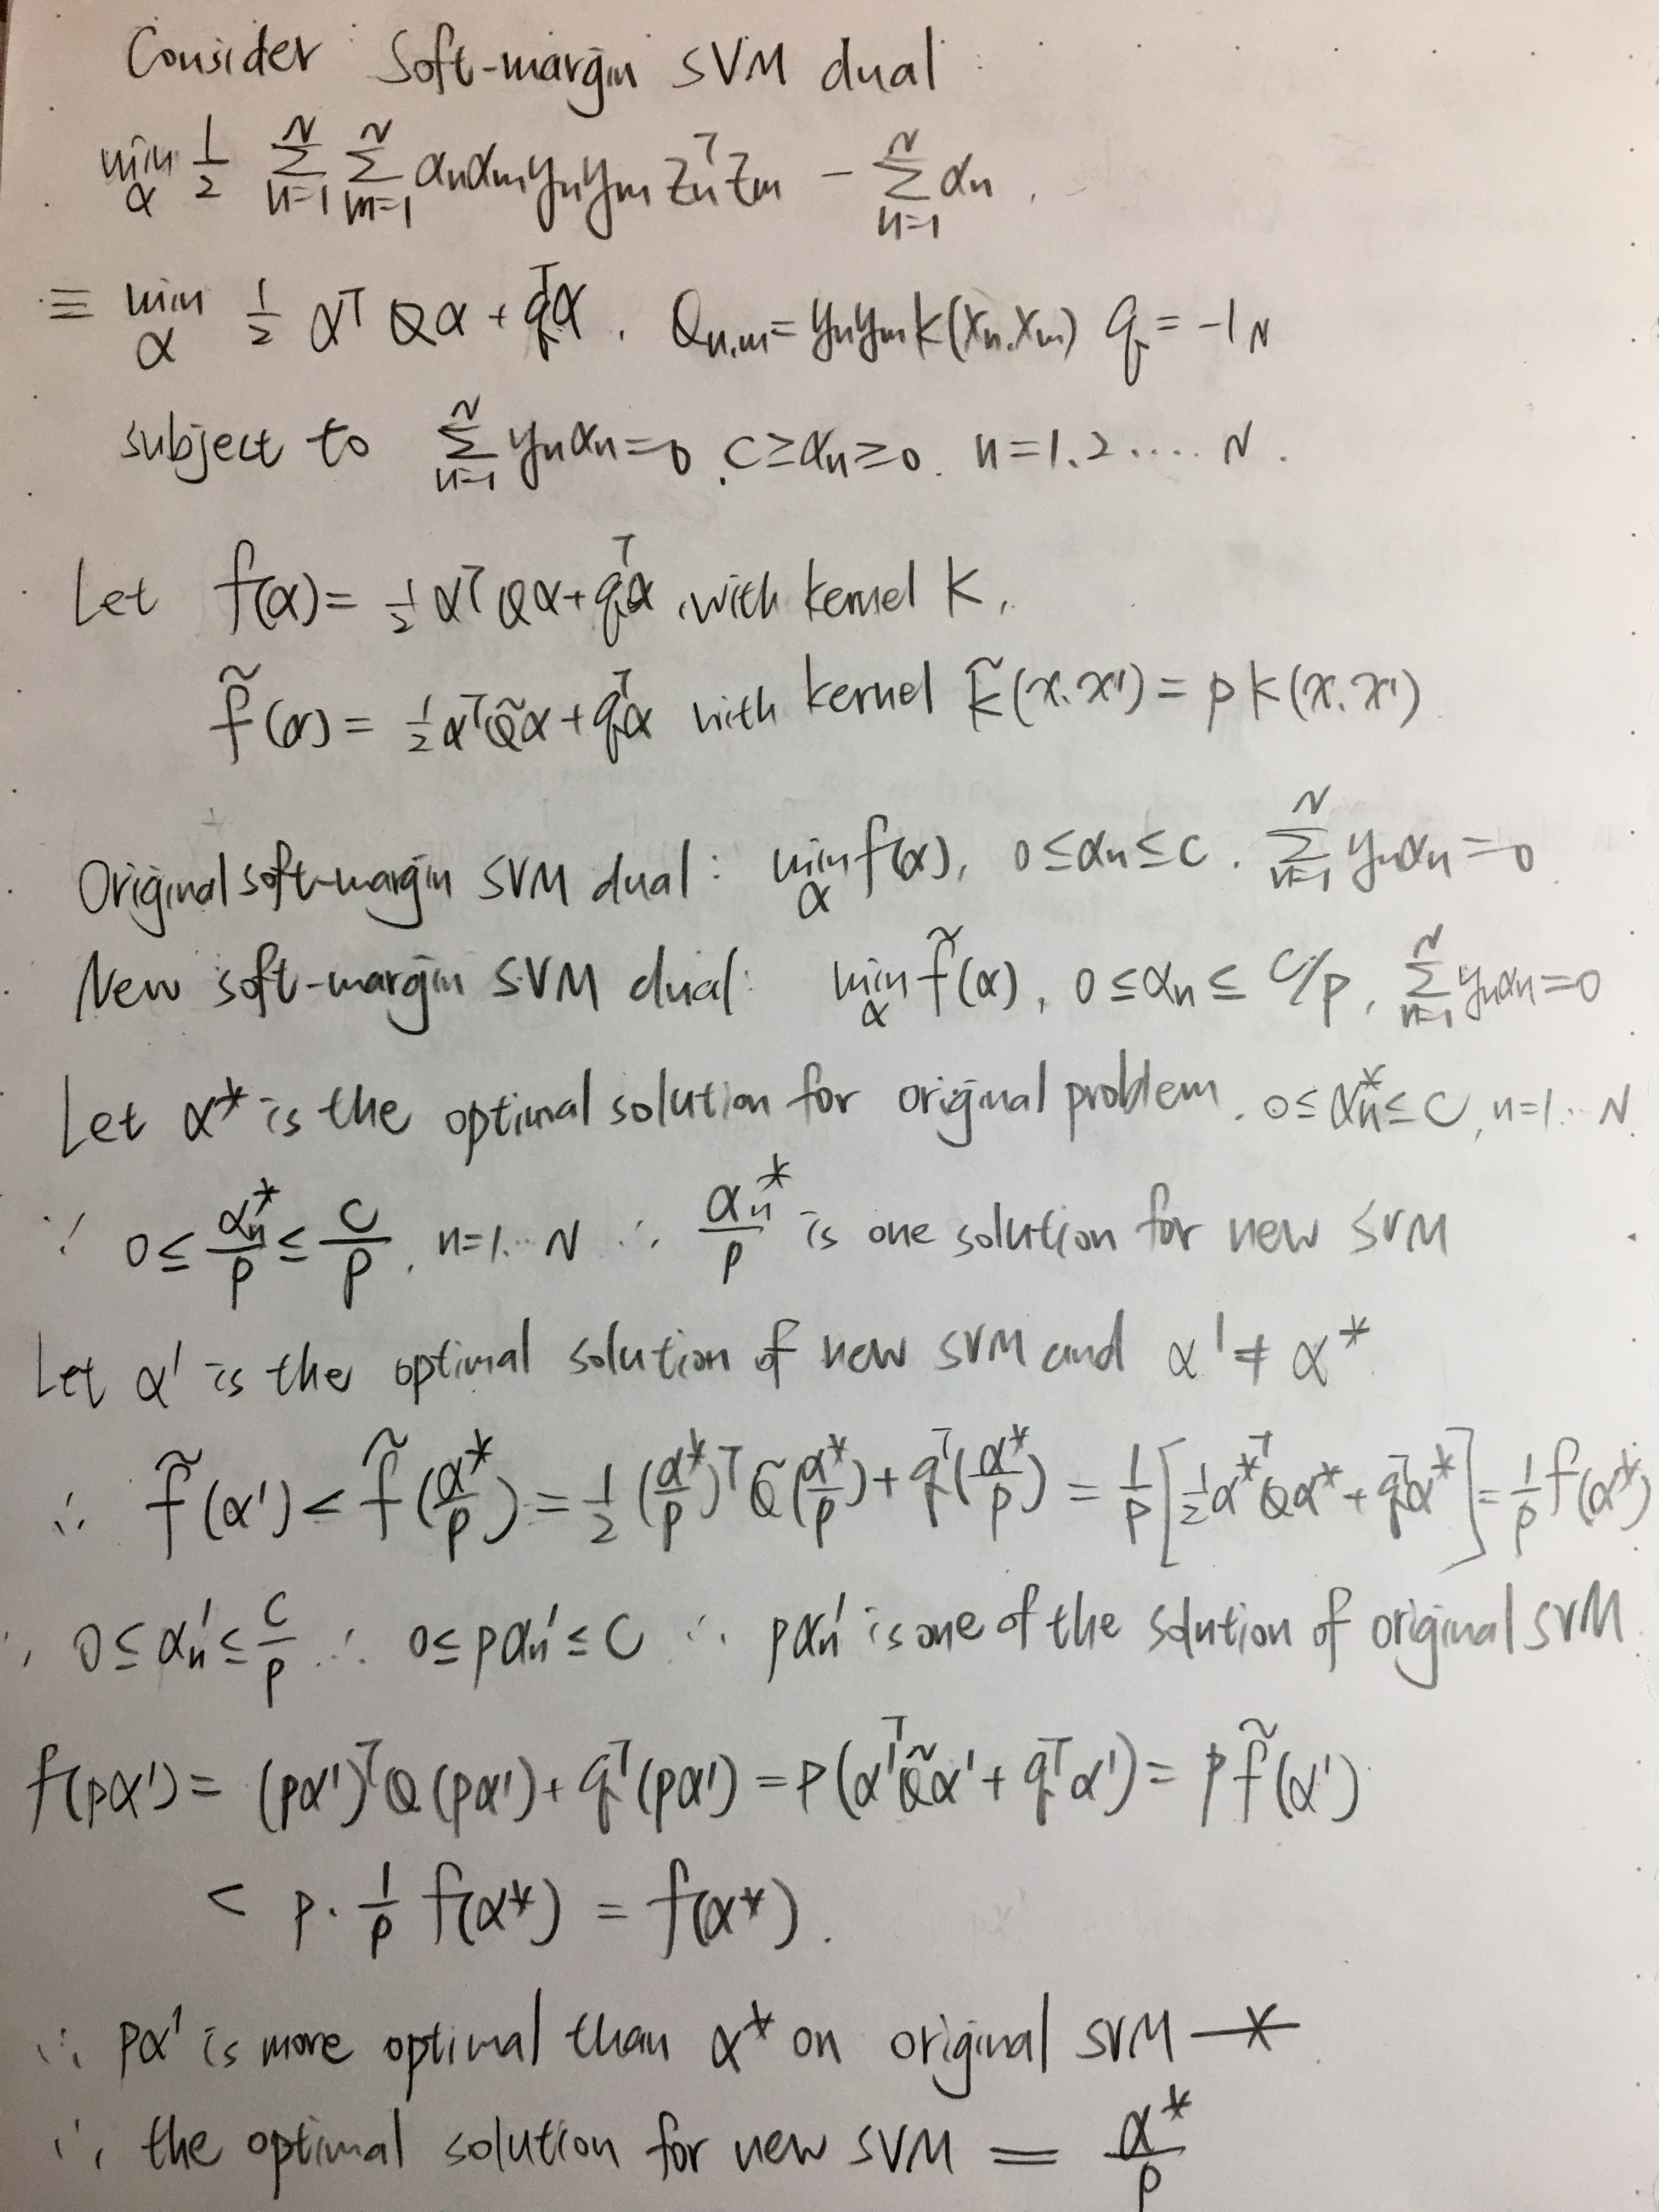 Consider Soft-margin SVM dual :
min_α 1/2 Σ_{n=1}^{N} Σ_{m=1}^{N} αₙαₘyₙyₘ zₙᵀzₘ − Σ_{n=1}^{N} αₙ .
≡ min_α 1/2 αᵀQα + qᵀα . Q_{n.m} = yₙyₘ k(xₙ.xₘ) q = −1_N
subject to Σ_{n=1}^{N} yₙαₙ=0 . C≥αₙ≥0. n=1.2.... N.
Let f(α) = 1/2 αᵀQα+qᵀα , with kernel K,
f̃(α) = 1/2 αᵀQ̃α+qᵀα with kernel K̃(x.x') = p k(x.x')
Original soft-margin SVM dual : min_α f(α), 0≤αₙ≤C . Σ_{n=1}^{N} yₙαₙ=0
New soft-margin SVM dual: min_α f̃(α), 0≤αₙ≤ C/p, Σ_{n=1}^{N} yₙαₙ=0
Let α* is the optimal solution for original problem. 0≤αₙ*≤C, n=1...N.
∵ 0≤ αₙ*/p ≤ C/p, n=1...N ∴ αₙ*/p is one solution for new SVM
Let α' is the optimal solution of new SVM and α' ≠ α*
∴ f̃(α') < f̃(α*/p) = 1/2 (α*/p)ᵀ Q̃ (α*/p) + qᵀ(α*/p) = 1/p [1/2 α*ᵀQα* + qᵀα*] = 1/p f(α*)
∵ 0≤αₙ'≤ C/p ∴ 0≤pαₙ'≤C ∴ pαₙ' is one of the solution of original SVM.
f(pα') = (pα')ᵀQ(pα') + qᵀ(pα') = p(α'ᵀQ̃α' + qᵀα') = p f̃(α')
< p · 1/p f(α*) = f(α*).
∴ pα' is more optimal than α* on original SVM —※
∴ the optimal solution for new SVM = α*/p